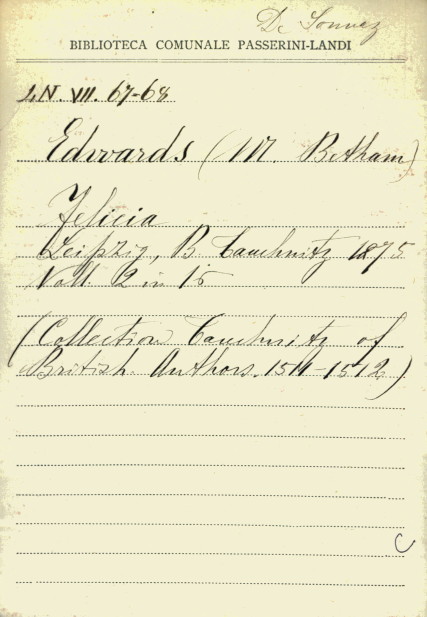 BIBLIOTECA COMUNALE PASSERINI-LANDI
L.N. VII. 67-68
Edwards (M. Betham)
Felicia
Leipzig, B. Tauchnitz 1875
Voll. 2 in 15
(Collection Tauchnitz of
British Authors. 1511-1512)
C